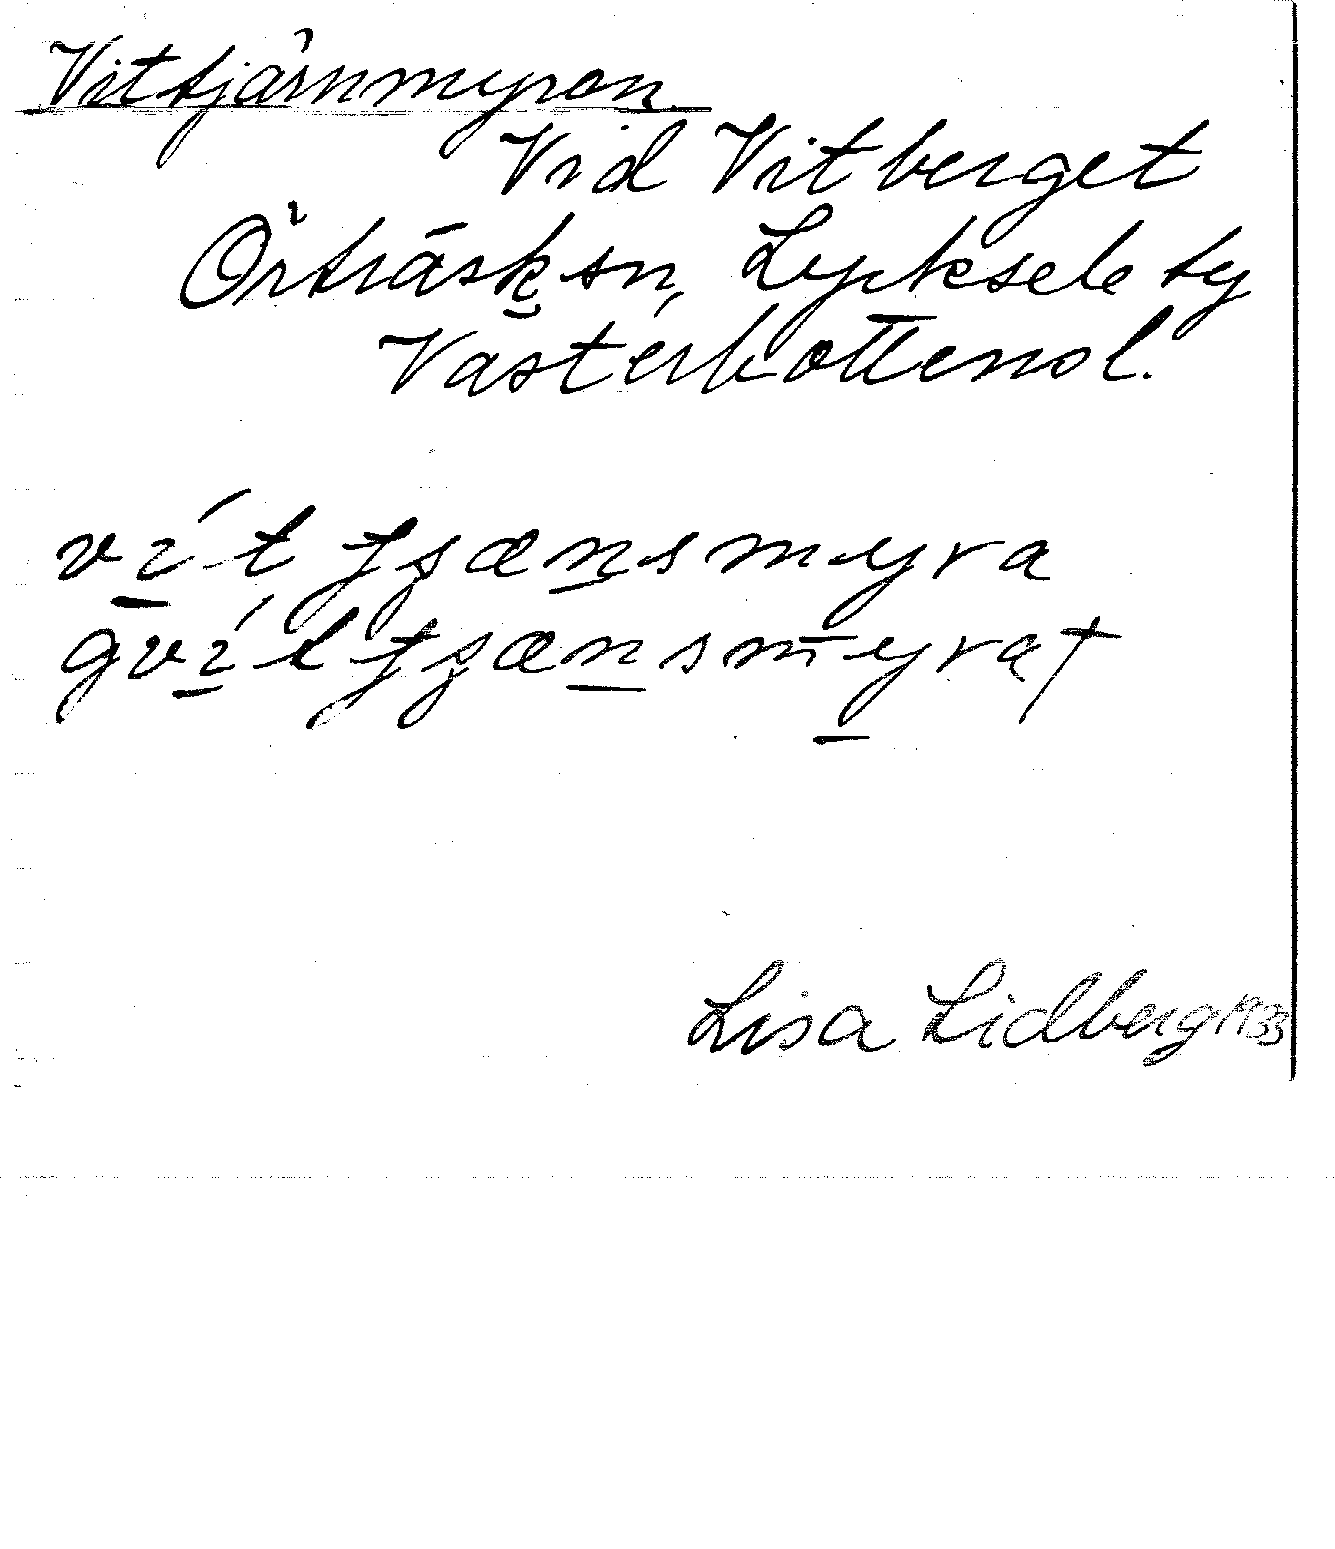 Vittjärnmyran
Vid Vitberget
Örträsk sn, Lycksele ty
Västerbottens l.
ví̱t tʂæṉsmyra
gví̱t tʂæṉsmy̱ra†
Lisa Lidberg 1933